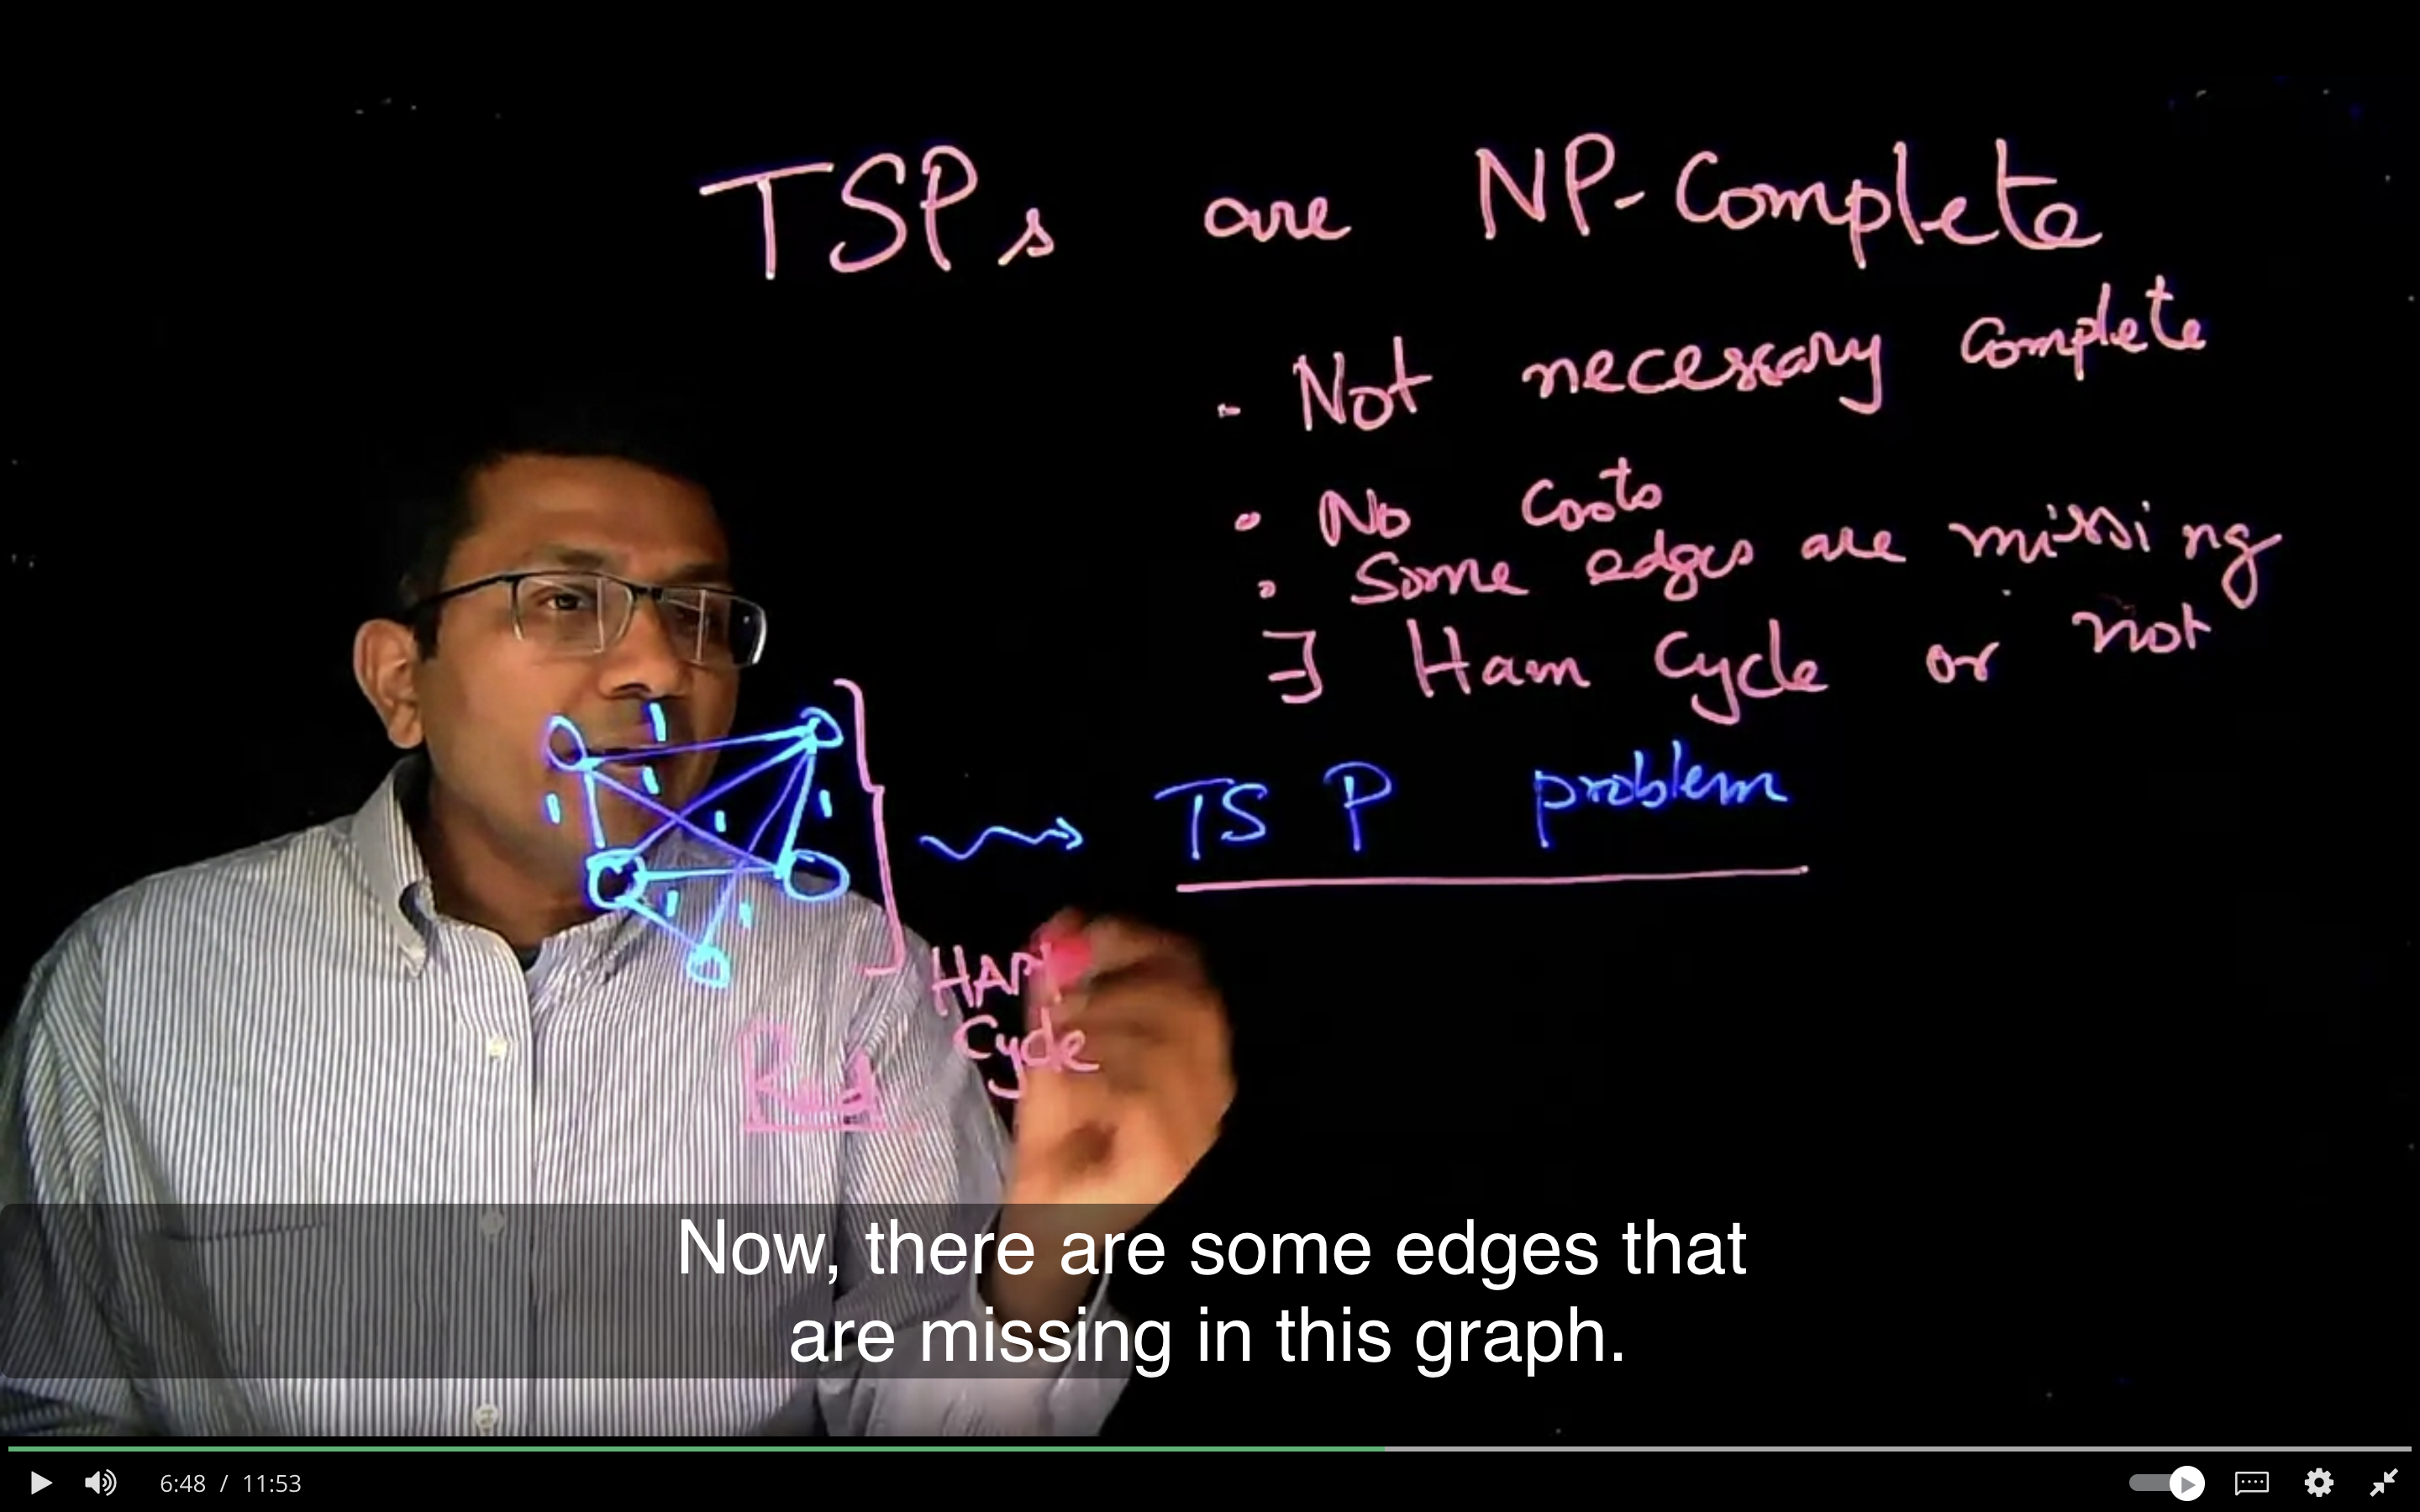 TSPs are NP-Complete
- Not necessary complete
• No Costs
• Some edges are missing
∃ Ham Cycle or not
1
1
1
1
1
1
1
TSP problem
HAM
Cycle
Red
Now, there are some edges that
are missing in this graph.
6:48 / 11:53